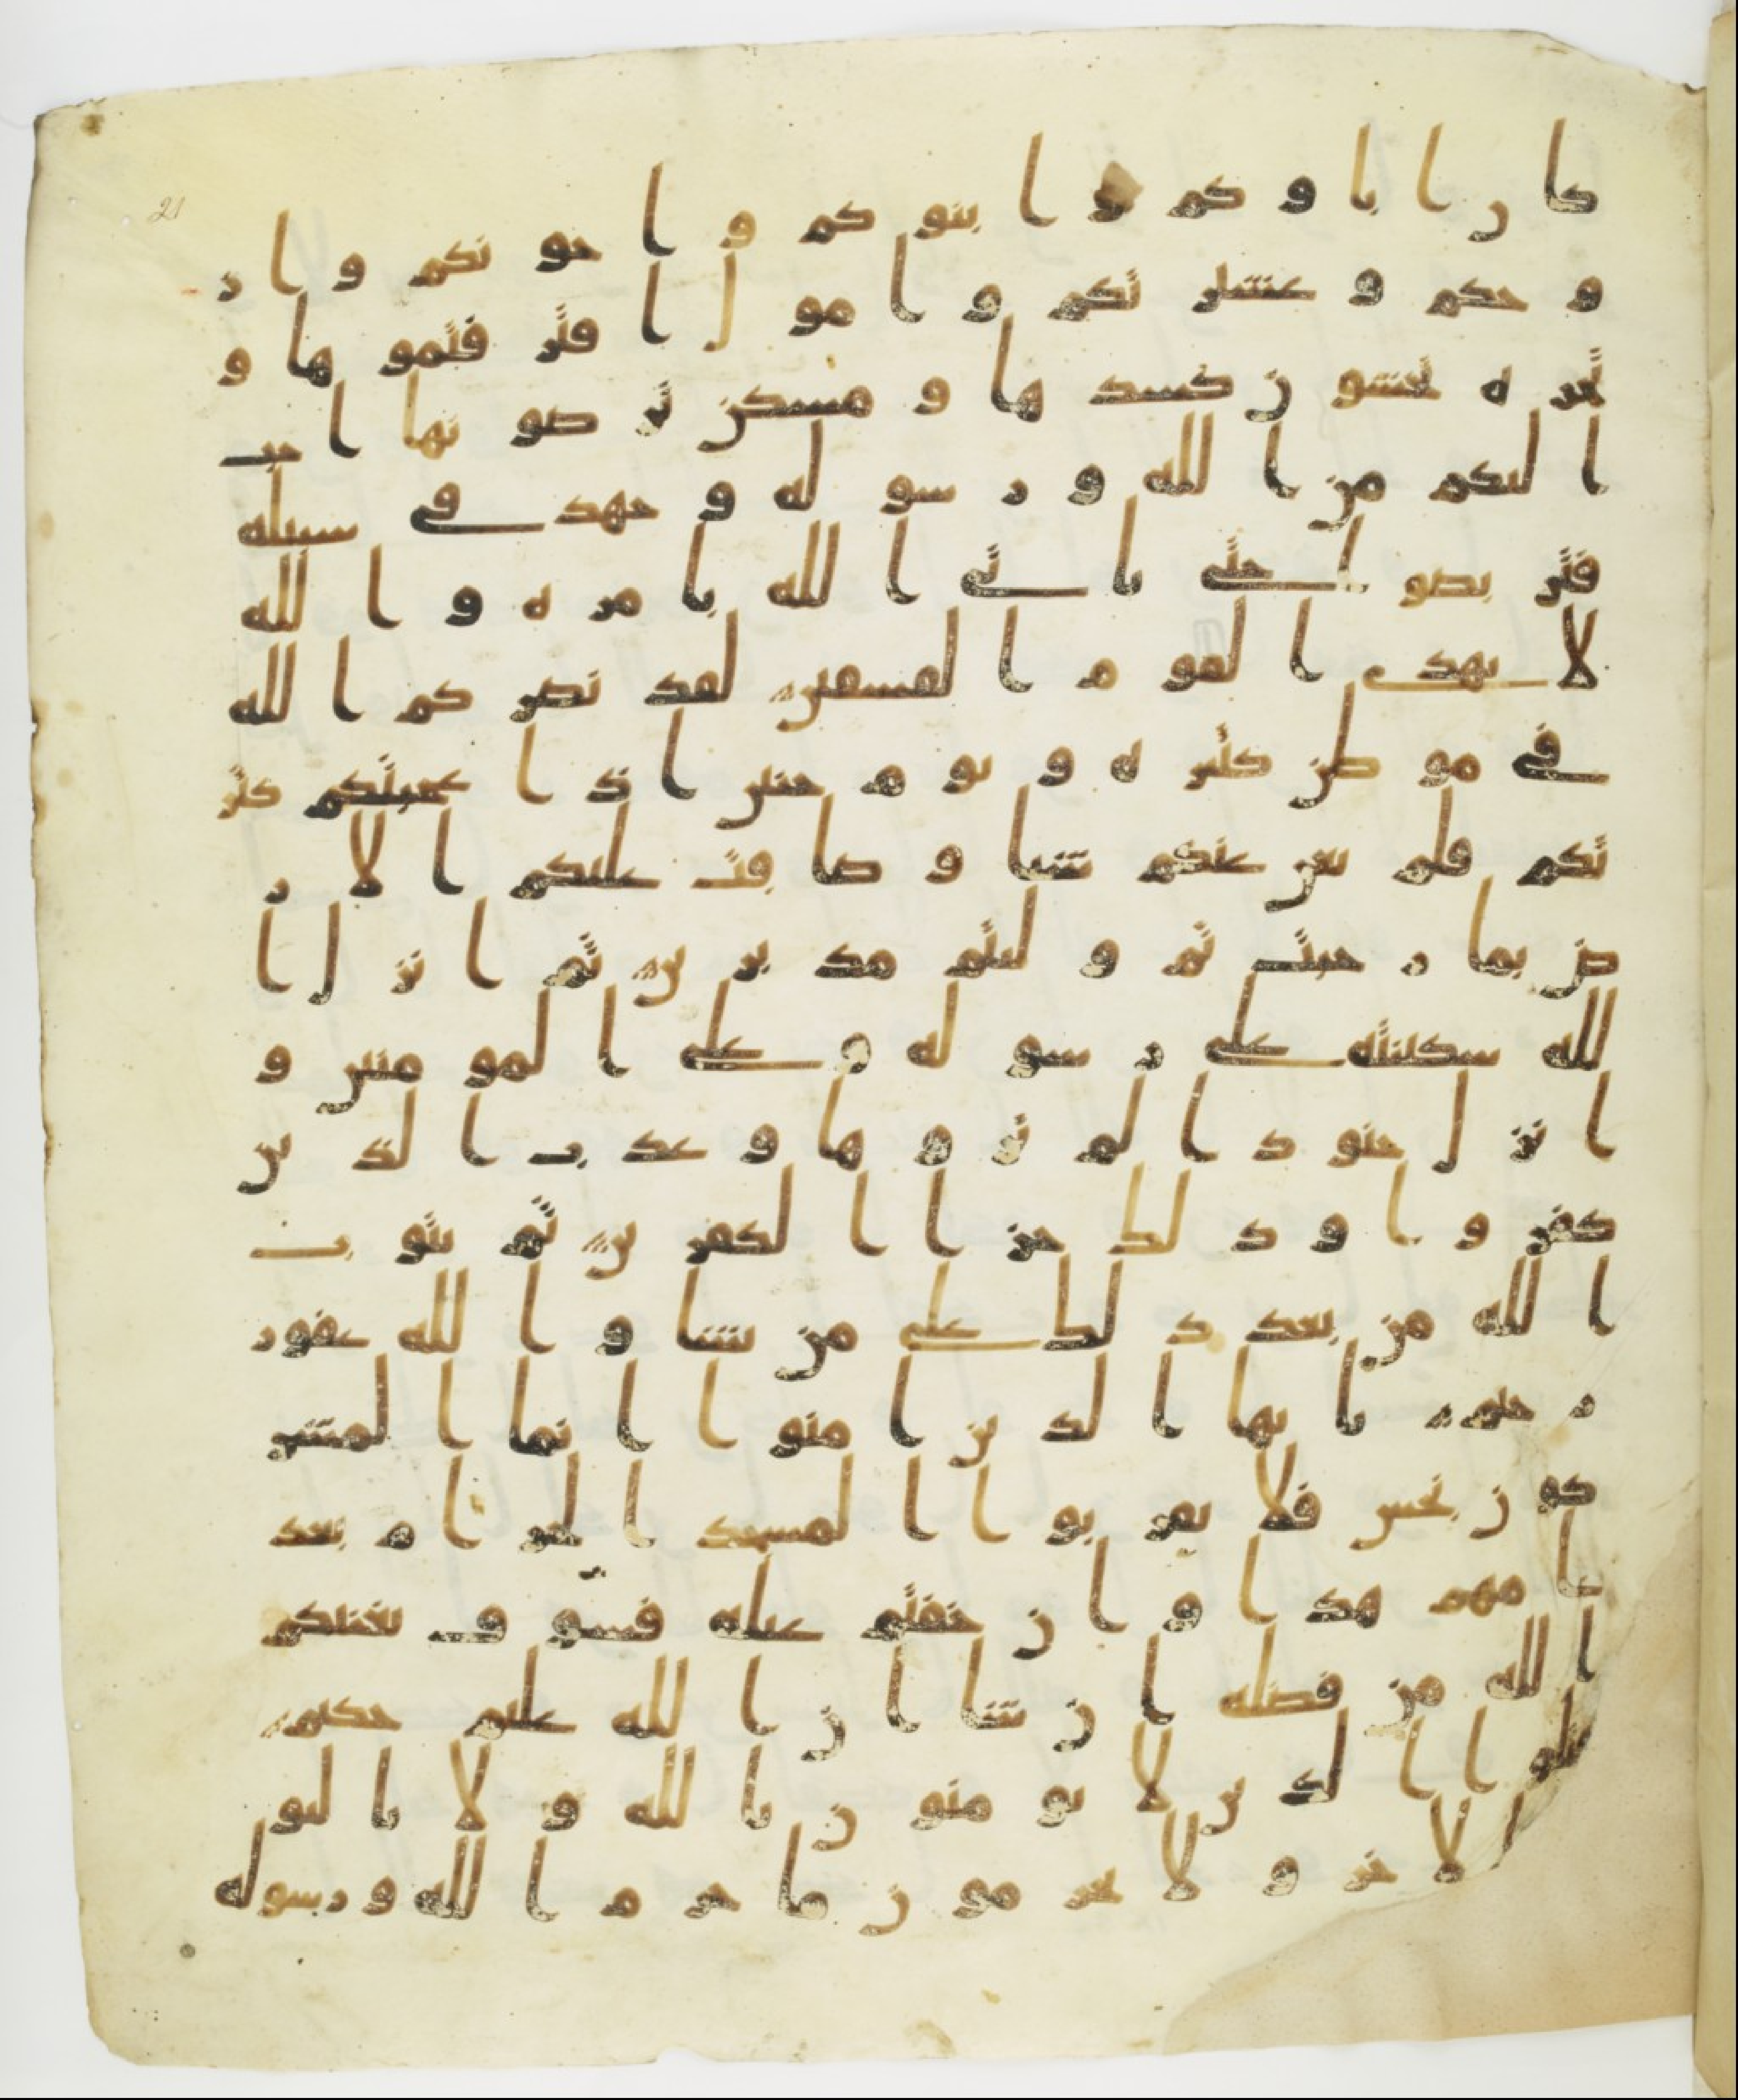 كان اباوكم و ابنوكم و اخونكم و از
وجكم و عشيرتكم و امول اقترفتموها و
تجره تخشون كسدها و مسكن ترضونها احب
اليكم من الله و رسوله و جهد في سبيله
فتربصوا حتى ياتي الله بامره و الله
لا يهدي القوم الفسقين لقد نصركم الله
في موطن كثيره و يوم حنين اذ اعجبتكم كثر
تكم فلم تغن عنكم شيا و ضاقت عليكم الار
ض بما رحبت ثم وليتم مدبرين ثم انزل ا
لله سكينته على رسوله و على المومنين و
انزل جنودا لم تروها و عذب الذين
كفروا و ذلك جزا الكفرين ثم يتوب
الله من بعد ذلك على من يشا و الله غفور
رحيم يايها الذين امنوا انما المشر
كون نجس فلا يقربوا المسجد الحرام بعد
عامهم هذا و ان خفتم عيله فسوف يغنيكم
الله من فضله ان شا ان الله عليم حكيم
قتلوا الذين لا يومنون بالله و لا باليو
م الاخر و لا يحرمون ما حرم الله و رسوله